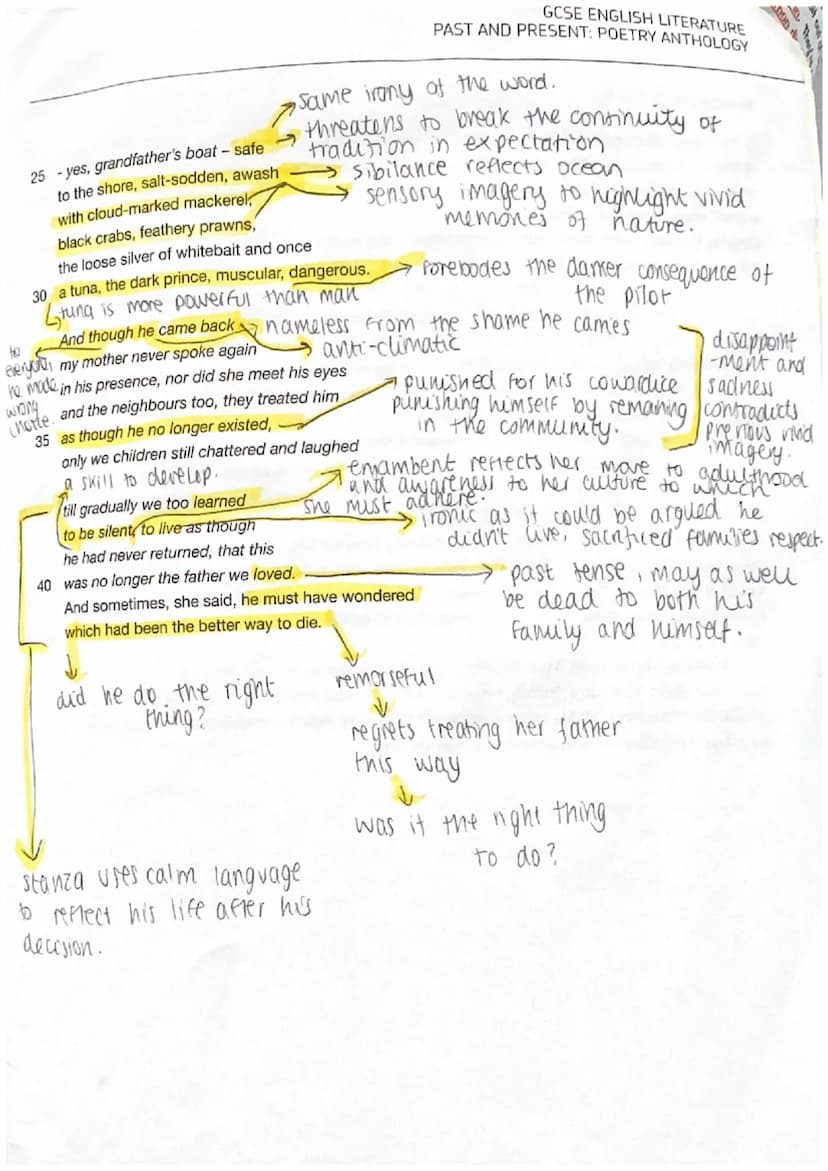 GCSE ENGLISH LITERATURE
PAST AND PRESENT: POETRY ANTHOLOGY
same irony of the word.
threatens to break the continuity of
tradition in expectation
25 - yes, grandfather's boat – safe
to the shore, salt-sodden, awash
sibilance reflects ocean
with cloud-marked mackerel,
sensory imagery to highlight vivid
memories of nature.
black crabs, feathery prawns,
the loose silver of whitebait and once
30 a tuna, the dark prince, muscular, dangerous.
Forebodes the darker consequence of
the pilot
tuna is more powerful than man
And though he came back
nameless from the shame he carries
anti-climatic
to
everyone,
he made
wrong
choice.
my mother never spoke again
in his presence, nor did she meet his eyes
and the neighbours too, they treated him
35 as though he no longer existed,
punished for his cowardice
punishing himself by remaning
in the community.
disappoint
-ment and
sadness
contradicts
previous vivid
imagery.
only we children still chattered and laughed
a skill to develop.
enjambent reflects her move to adulthood
and awareness to her culture to which
she must adhere.
till gradually we too learned
to be silent, to live as though
ironic as it could be argued he
didn't live, sacrificed families respect.
he had never returned, that this
40 was no longer the father we loved.
past tense, may as well
be dead to both his
family and himself.
And sometimes, she said, he must have wondered
which had been the better way to die.
did he do the right
thing?
remorseful
regrets treating her father
this way
was it the right thing
to do?
stanza uses calm language
to reflect his life after his
decision.